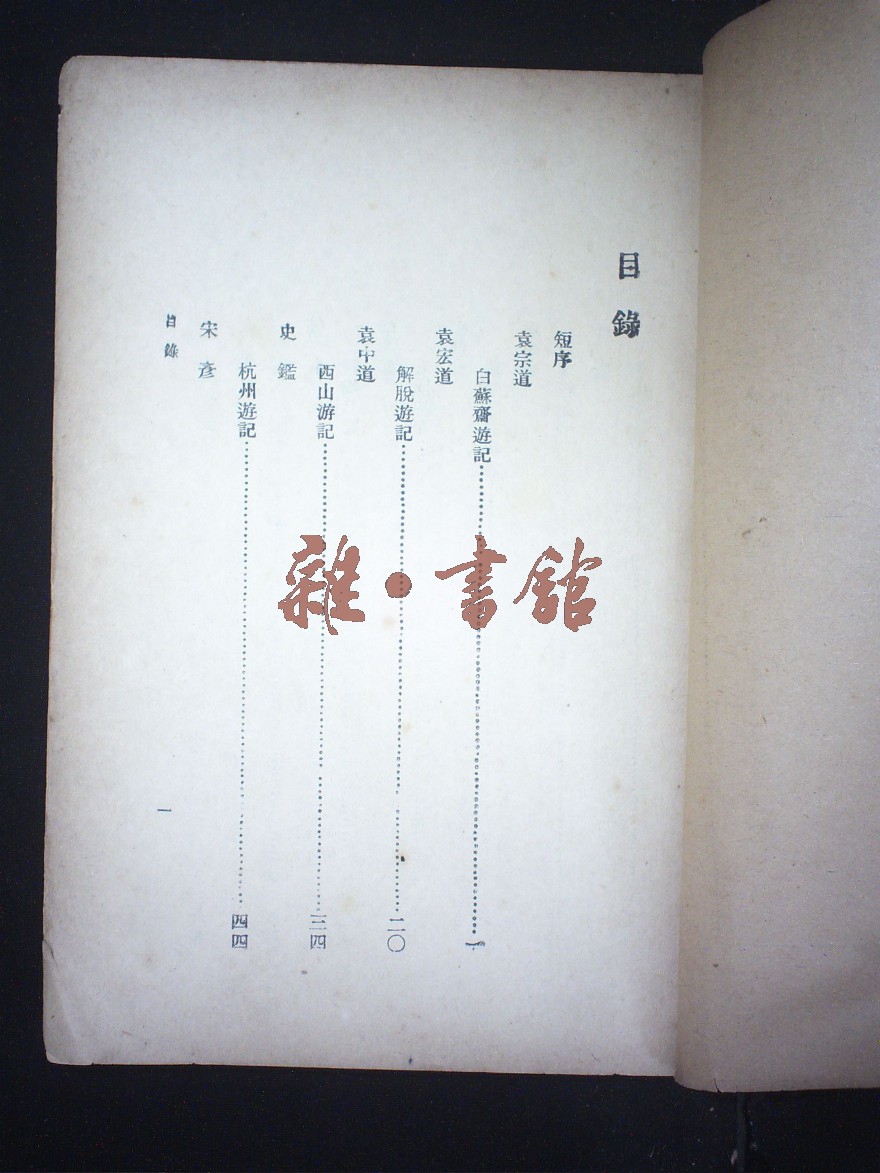 目錄
短序
袁宗道
白蘇齋遊記……一
袁宏道
解脫遊記……二〇
袁中道
西山游記……三四
史鑑
杭州遊記……四四
宋彥
目錄
一
雜·書館